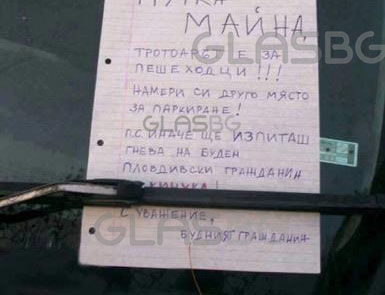 МАЙНА
ТРОТОАРЪТ Е ЗА
ПЕШЕХОДЦИ!!!
НАМЕРИ СИ ДРУГО МЯСТО
ЗА ПАРКИРАНЕ!
П.С. ИНАЧЕ ЩЕ ИЗПИТАШ
ГНЕВА НА БУДЕН
ПЛОВДИВСКИ ГРАЖДАНИН
С УВАЖЕНИЕ,
БУДНИЯТ ГРАЖДАНИН
GLASBG
GLASBG
GLASBG